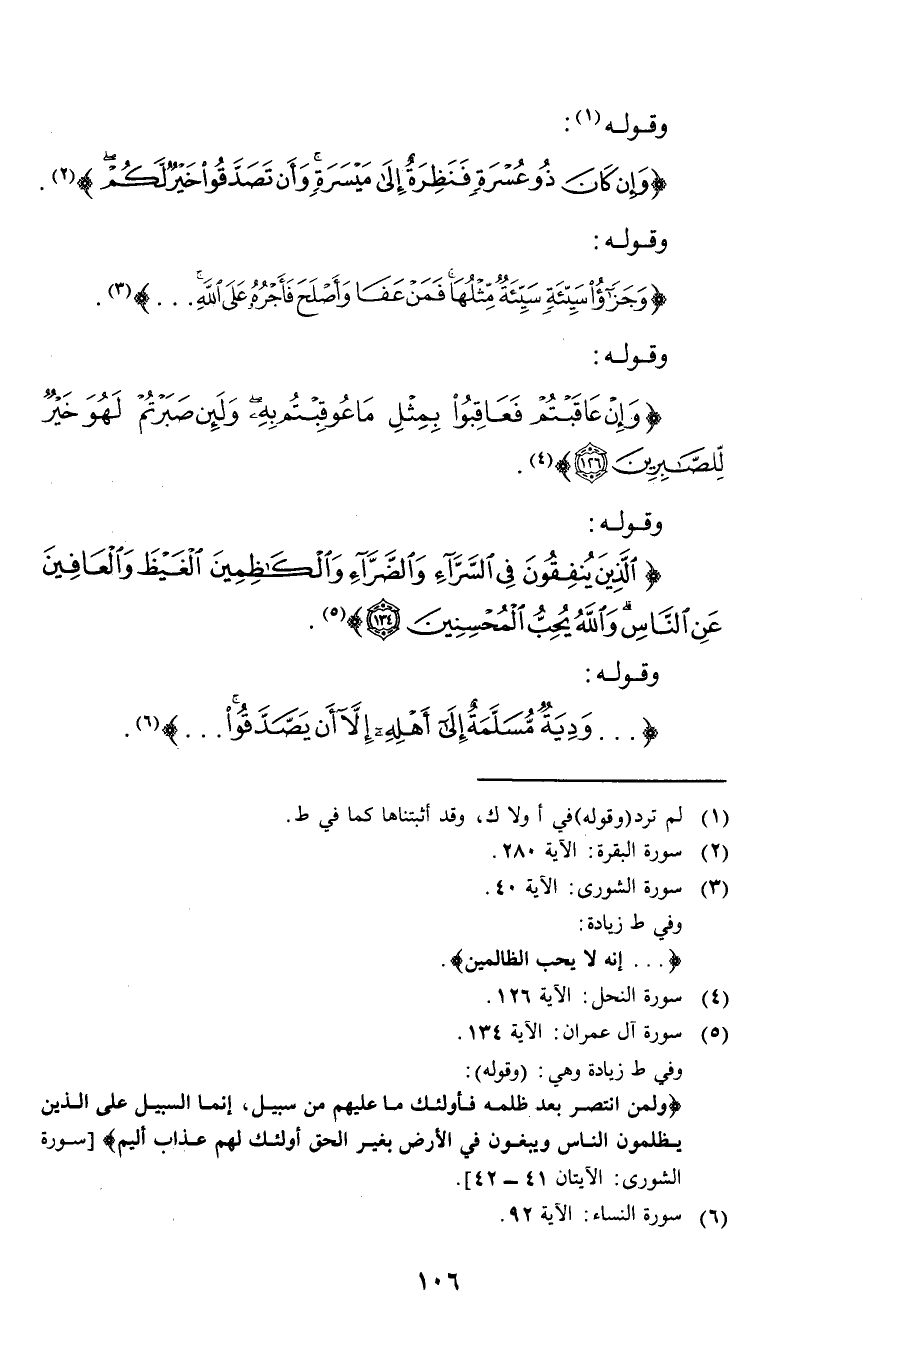 وقوله(١):
﴿وَإِن كَانَ ذُو عُسْرَةٍ فَنَظِرَةٌ إِلَىٰ مَيْسَرَةٍ ۚ وَأَن تَصَدَّقُوا۟ خَيْرٌ لَّكُمْ ۖ﴾(٢).
وقوله:
﴿وَجَزَٰٓؤُا۟ سَيِّئَةٍ سَيِّئَةٌ مِّثْلُهَا ۖ فَمَنْ عَفَا وَأَصْلَحَ فَأَجْرُهُۥ عَلَى ٱللَّهِ ۚ ...﴾(٣).
وقوله:
﴿وَإِنْ عَاقَبْتُمْ فَعَاقِبُوا۟ بِمِثْلِ مَا عُوقِبْتُم بِهِۦ ۖ وَلَئِن صَبَرْتُمْ لَهُوَ خَيْرٌ
لِّلصَّٰبِرِينَ ١٢٦﴾(٤).
وقوله:
﴿ٱلَّذِينَ يُنفِقُونَ فِى ٱلسَّرَّآءِ وَٱلضَّرَّآءِ وَٱلْكَٰظِمِينَ ٱلْغَيْظَ وَٱلْعَافِينَ
عَنِ ٱلنَّاسِ ۗ وَٱللَّهُ يُحِبُّ ٱلْمُحْسِنِينَ ١٣٤﴾(٥).
وقوله:
﴿... وَدِيَةٌ مُّسَلَّمَةٌ إِلَىٰٓ أَهْلِهِۦٓ إِلَّآ أَن يَصَّدَّقُوا۟ ۚ ...﴾(٦).
(١) لم ترد(وقوله)في أ ولا ك، وقد أثبتناها كما في ط.
(٢) سورة البقرة: الآية ٢٨٠.
(٣) سورة الشورى: الآية ٤٠.
وفي ط زيادة:
﴿... إنه لا يحب الظالمين﴾.
(٤) سورة النحل: الآية ١٢٦.
(٥) سورة آل عمران: الآية ١٣٤.
وفي ط زيادة وهي: (وقوله):
﴿ولمن انتصر بعد ظلمه فأولئك ما عليهم من سبيل، إنما السبيل على الذين
يظلمون الناس ويبغون في الأرض بغير الحق أولئك لهم عذاب أليم﴾ [سورة
الشورى: الآيتان ٤١ – ٤٢].
(٦) سورة النساء: الآية ٩٢.
١٠٦